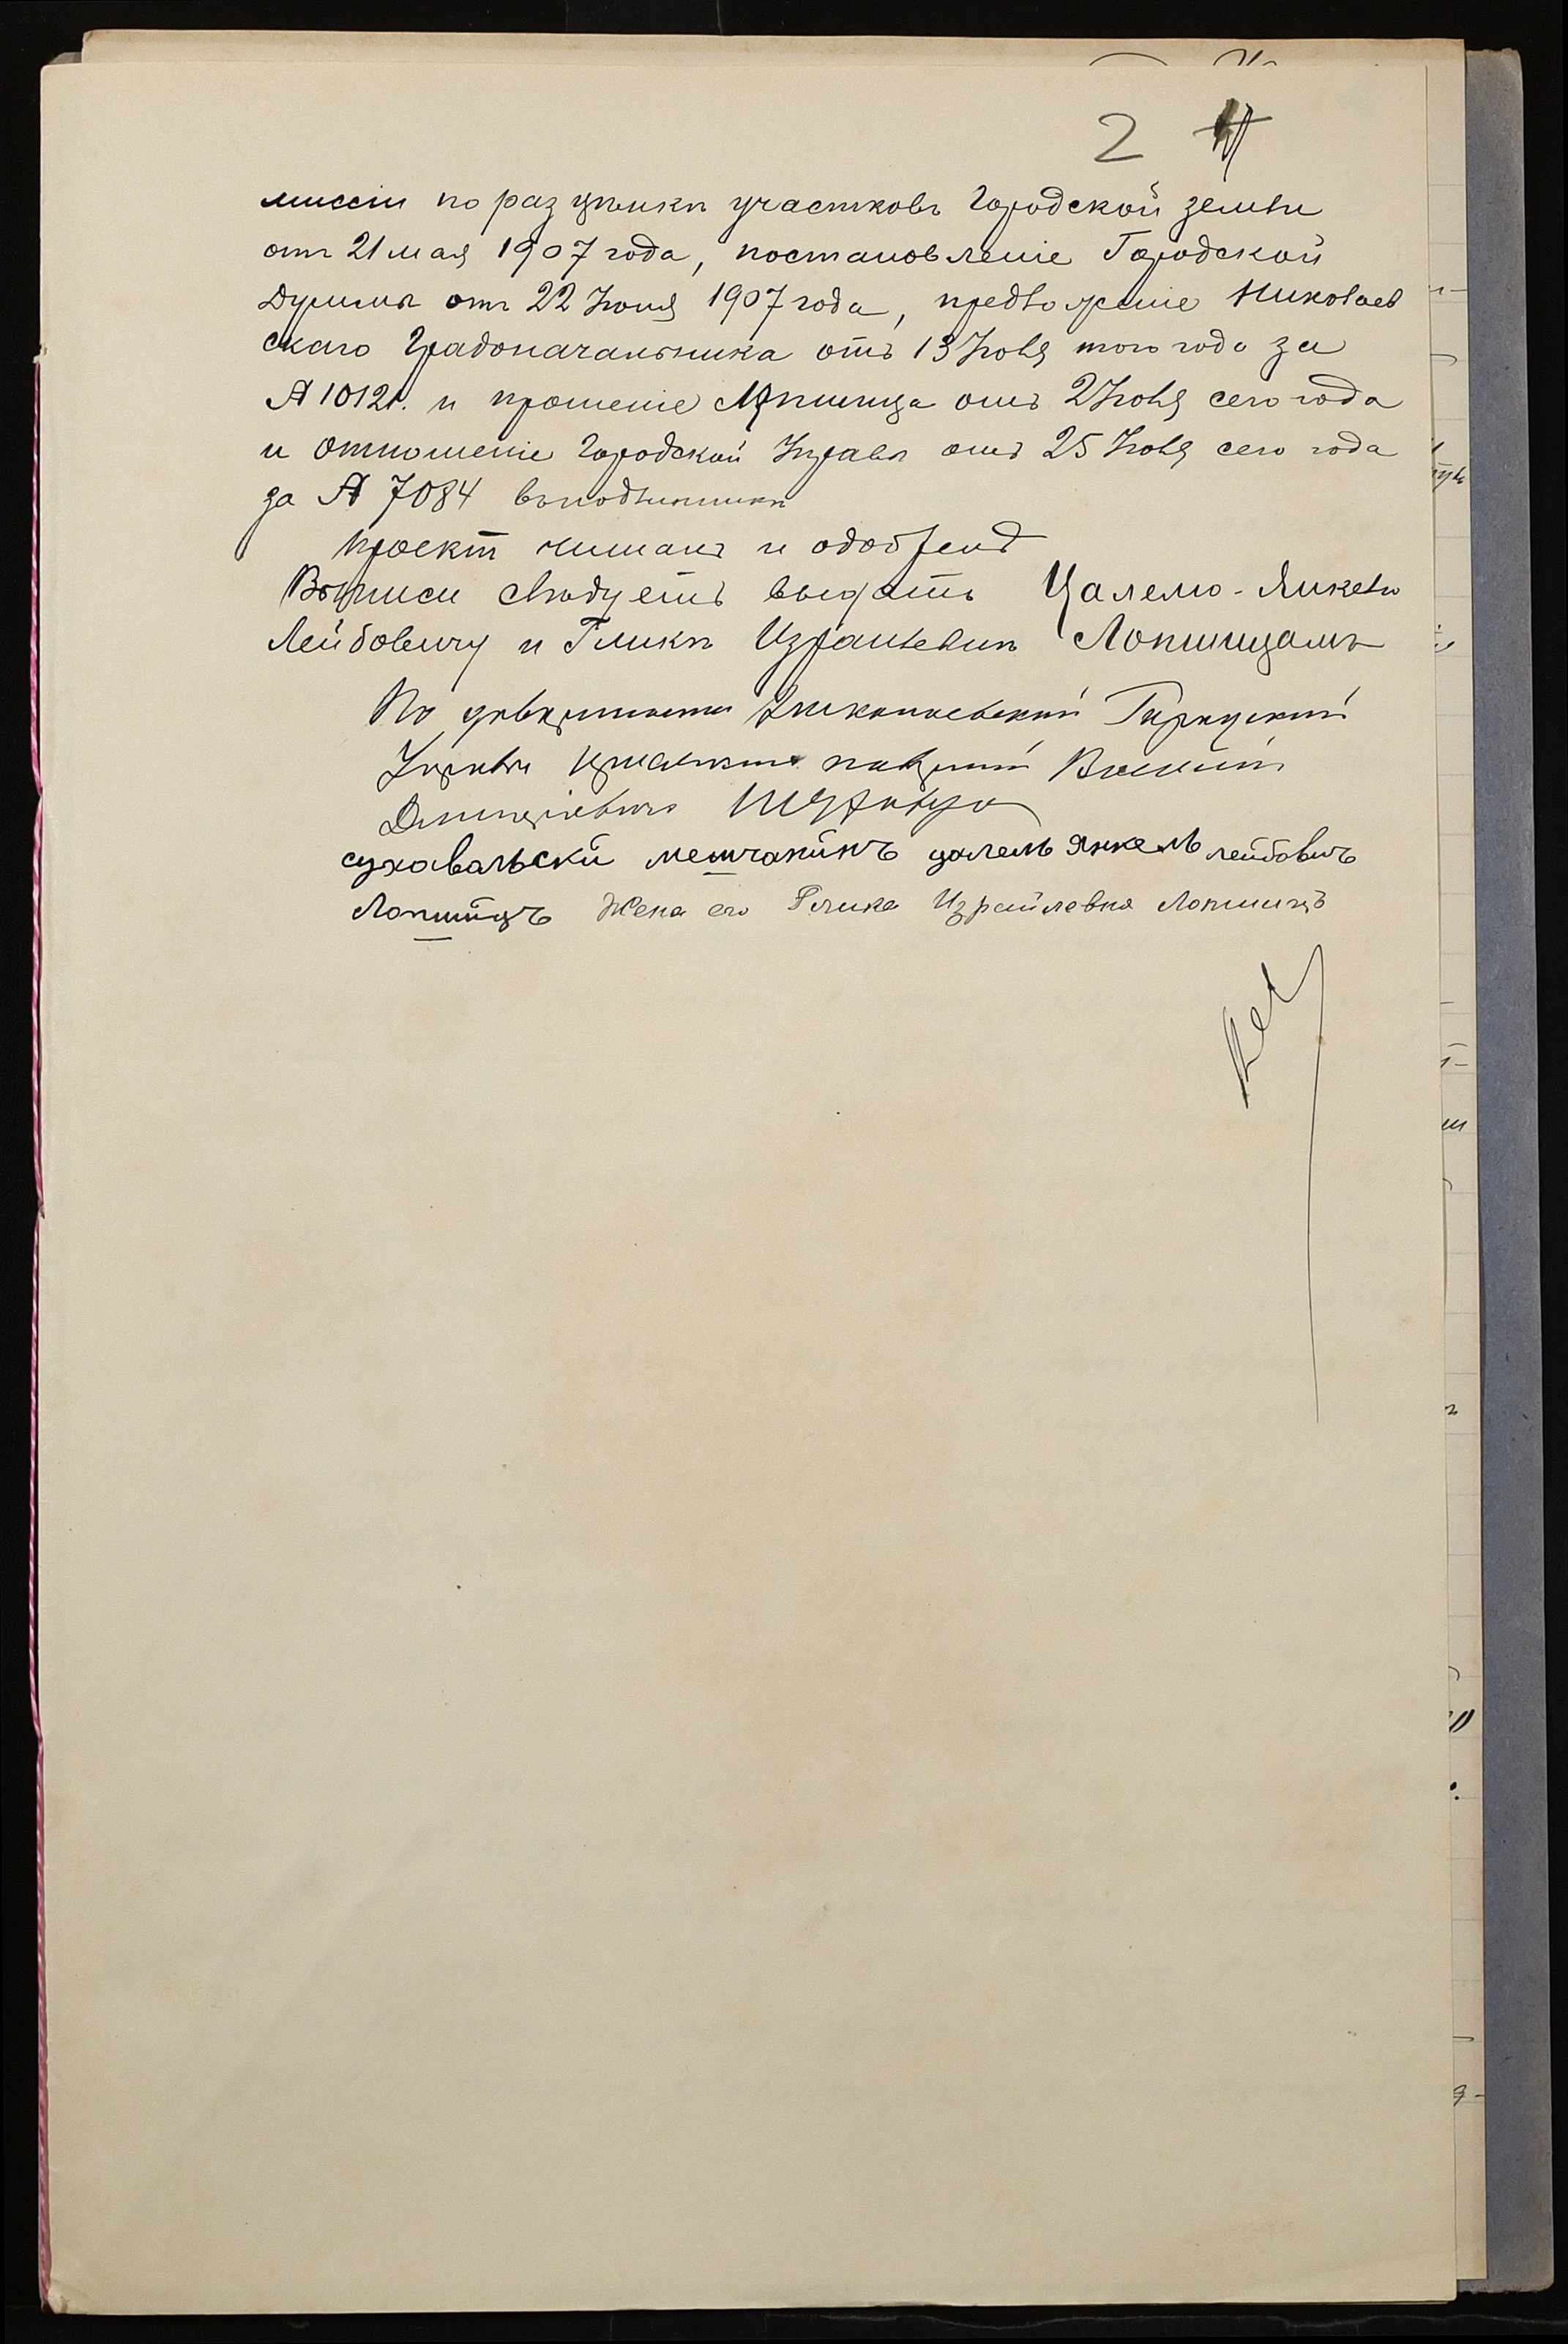 2
миссіи по разцѣнкѣ участковъ Городской земли
отъ 21 мая 1907 года, постановленіе Городской
Думы отъ 22 Іюня 1907 года, предложеніе Николаев
скаго Градоначальника отъ 13 Іюля того года за
№ 10121. и прошеніе Лопшица отъ 2 Іюля сего года
и отношеніе Городской Управы отъ 25 Іюля сего года
за № 7084 въ подлинникѣ
проектъ читанъ и одобренъ
Выписи слѣдуетъ выдать Цалелю-Янкелю
Лейбовичу и Гликѣ Израилевнѣ Лопшицамъ
По довѣренности Николаевской Городской
Управы присяжный повѣренный Василій
Дмитріевичъ
сухавальскй мешчанинъ цалель Янкель лейбовичъ
Лопшицъ Жена его Глика Израйлевна Лопшицъ